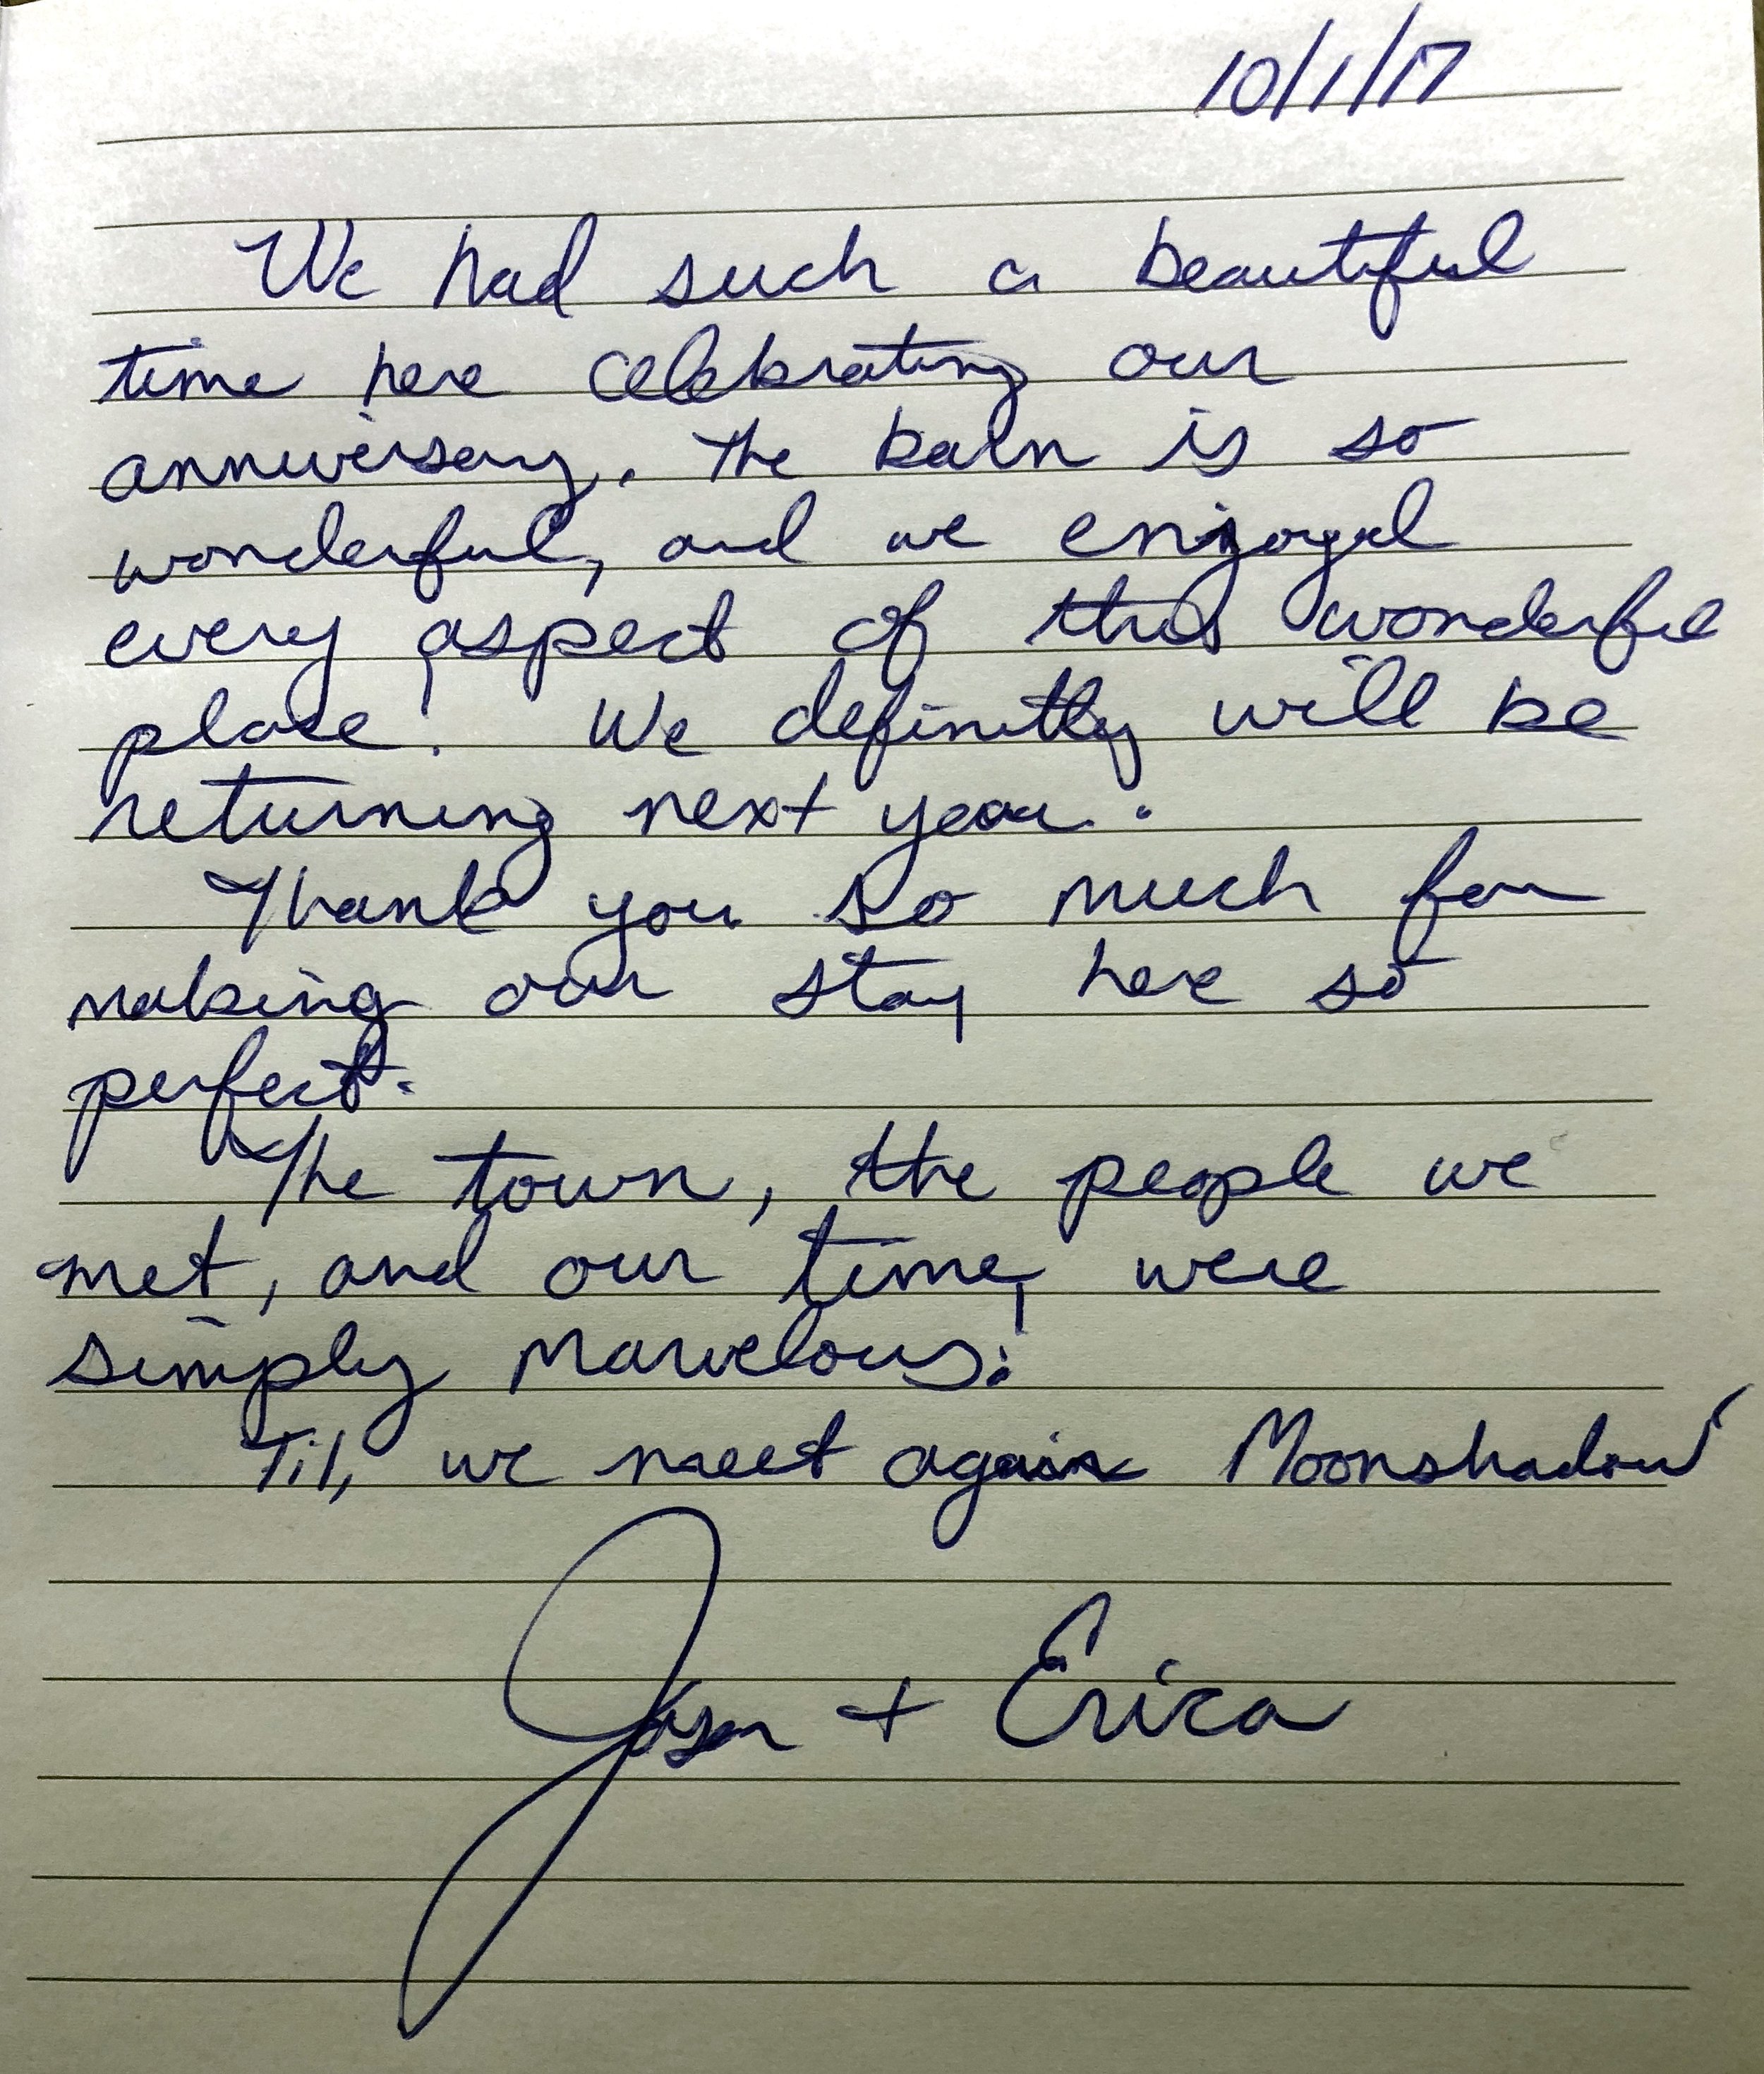 10/1/17
We had such a beautiful
time here celebrating our
anniversary. The barn is so
wonderful, and we enjoyed
every aspect of this wonderful
place! We definitly will be
returning next year.
Thank you so much for
making our stay here so
perfect.
The town, the people we
met, and our time, were
simply marvelous!
Til, we meet again Moonshadow
Jason + Erica